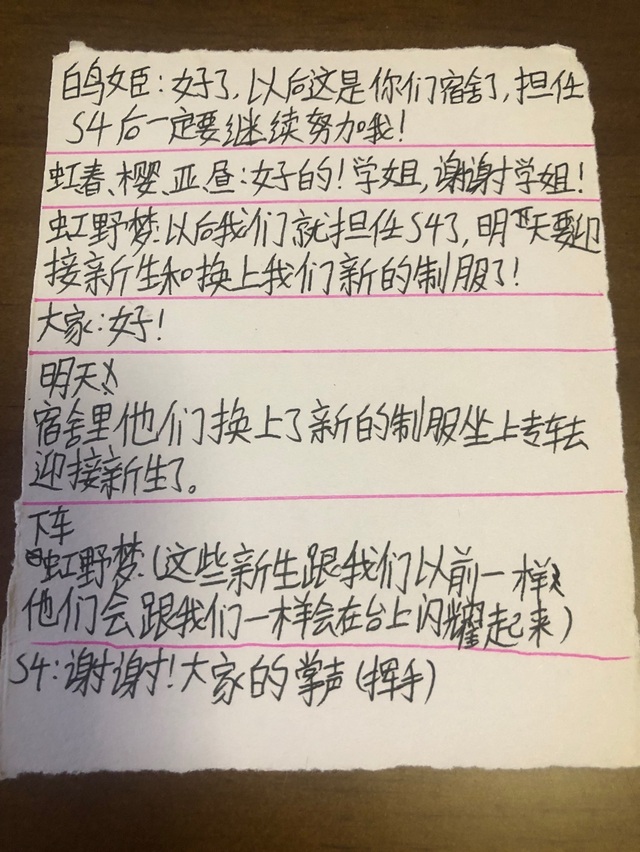 白鸟姬：好了，以后这是你们宿舍了，担任
S4后一定要继续努力哦！
虹春、樱、亚、昼：好的！学姐，谢谢学姐！
虹野梦：以后我们就担任S4了，明天要迎
接新生和换上我们新的制服了！
大家：好！
明天
宿舍里他们换上了新的制服坐上专车去
迎接新生了。
下车
虹野梦：（这些新生跟我们以前一样
他们会跟我们一样会在台上闪耀起来）
S4：谢谢！大家的掌声（挥手）